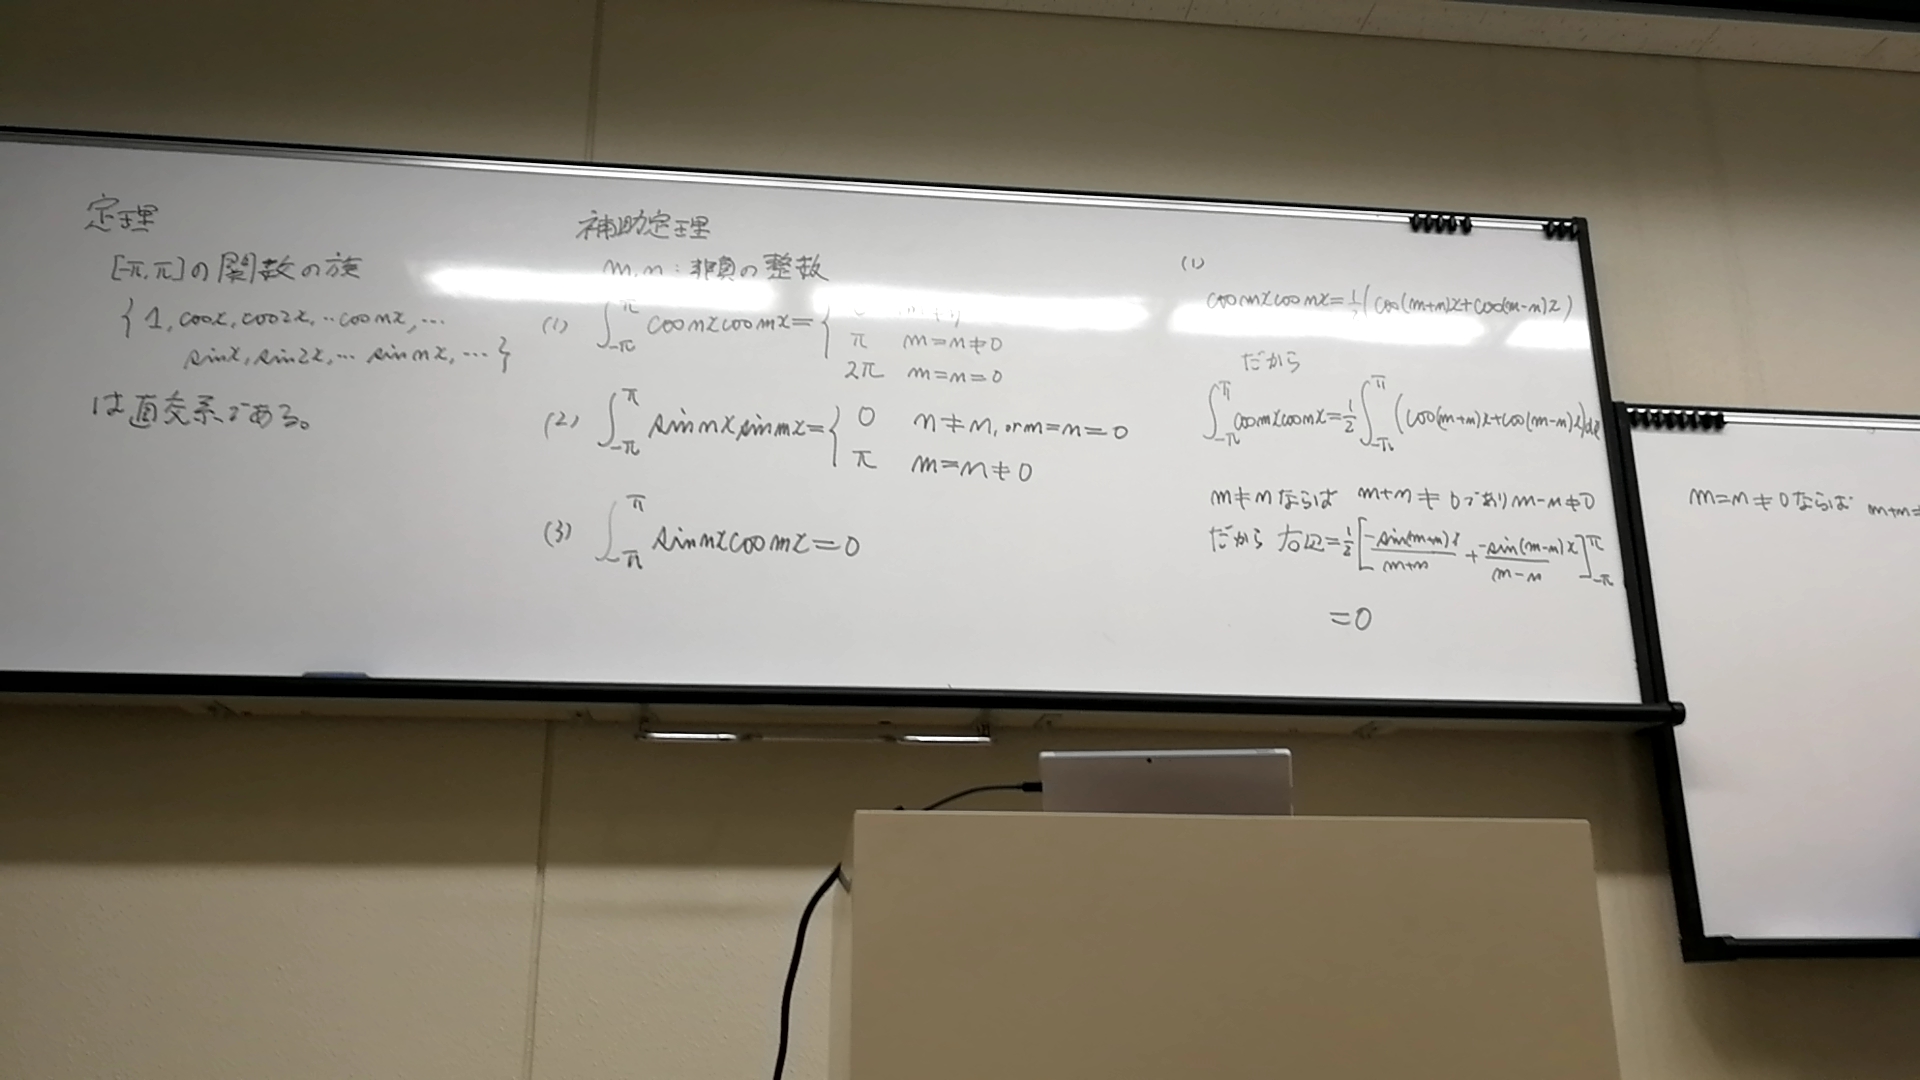 定理
[-π,π]の関数の族
{1, cosx, cos2x, ‥cosnx, …
sinx, sin2x, … sin nx, … }
は直交系である。
補助定理
m,n : 非負の整数
(1) ∫_{-π}^{π} cosnxcosmx = {
π m=n≠0
2π m=n=0
(2) ∫_{-π}^{π} sin nx sin mx = { 0 n≠n, or m=n=0
π m=n≠0
(3) ∫_{-π}^{π} sin nx cos mx = 0
(1)
cosmxcosnx = 1/2(cos(m+n)x+cos(m-n)x)
だから
∫_{-π}^{π} cosmxcosnx = 1/2 ∫_{-π}^{π} (cos(m+n)x+cos(m-n)x)dx
m≠nならば m+n≠0であり m-n≠0
だから 右辺=1/2[-sin(m+n)x/m+n + -sin(m-n)x/m-n]_{-π}^{π}
=0
m=n≠0ならば m+n=